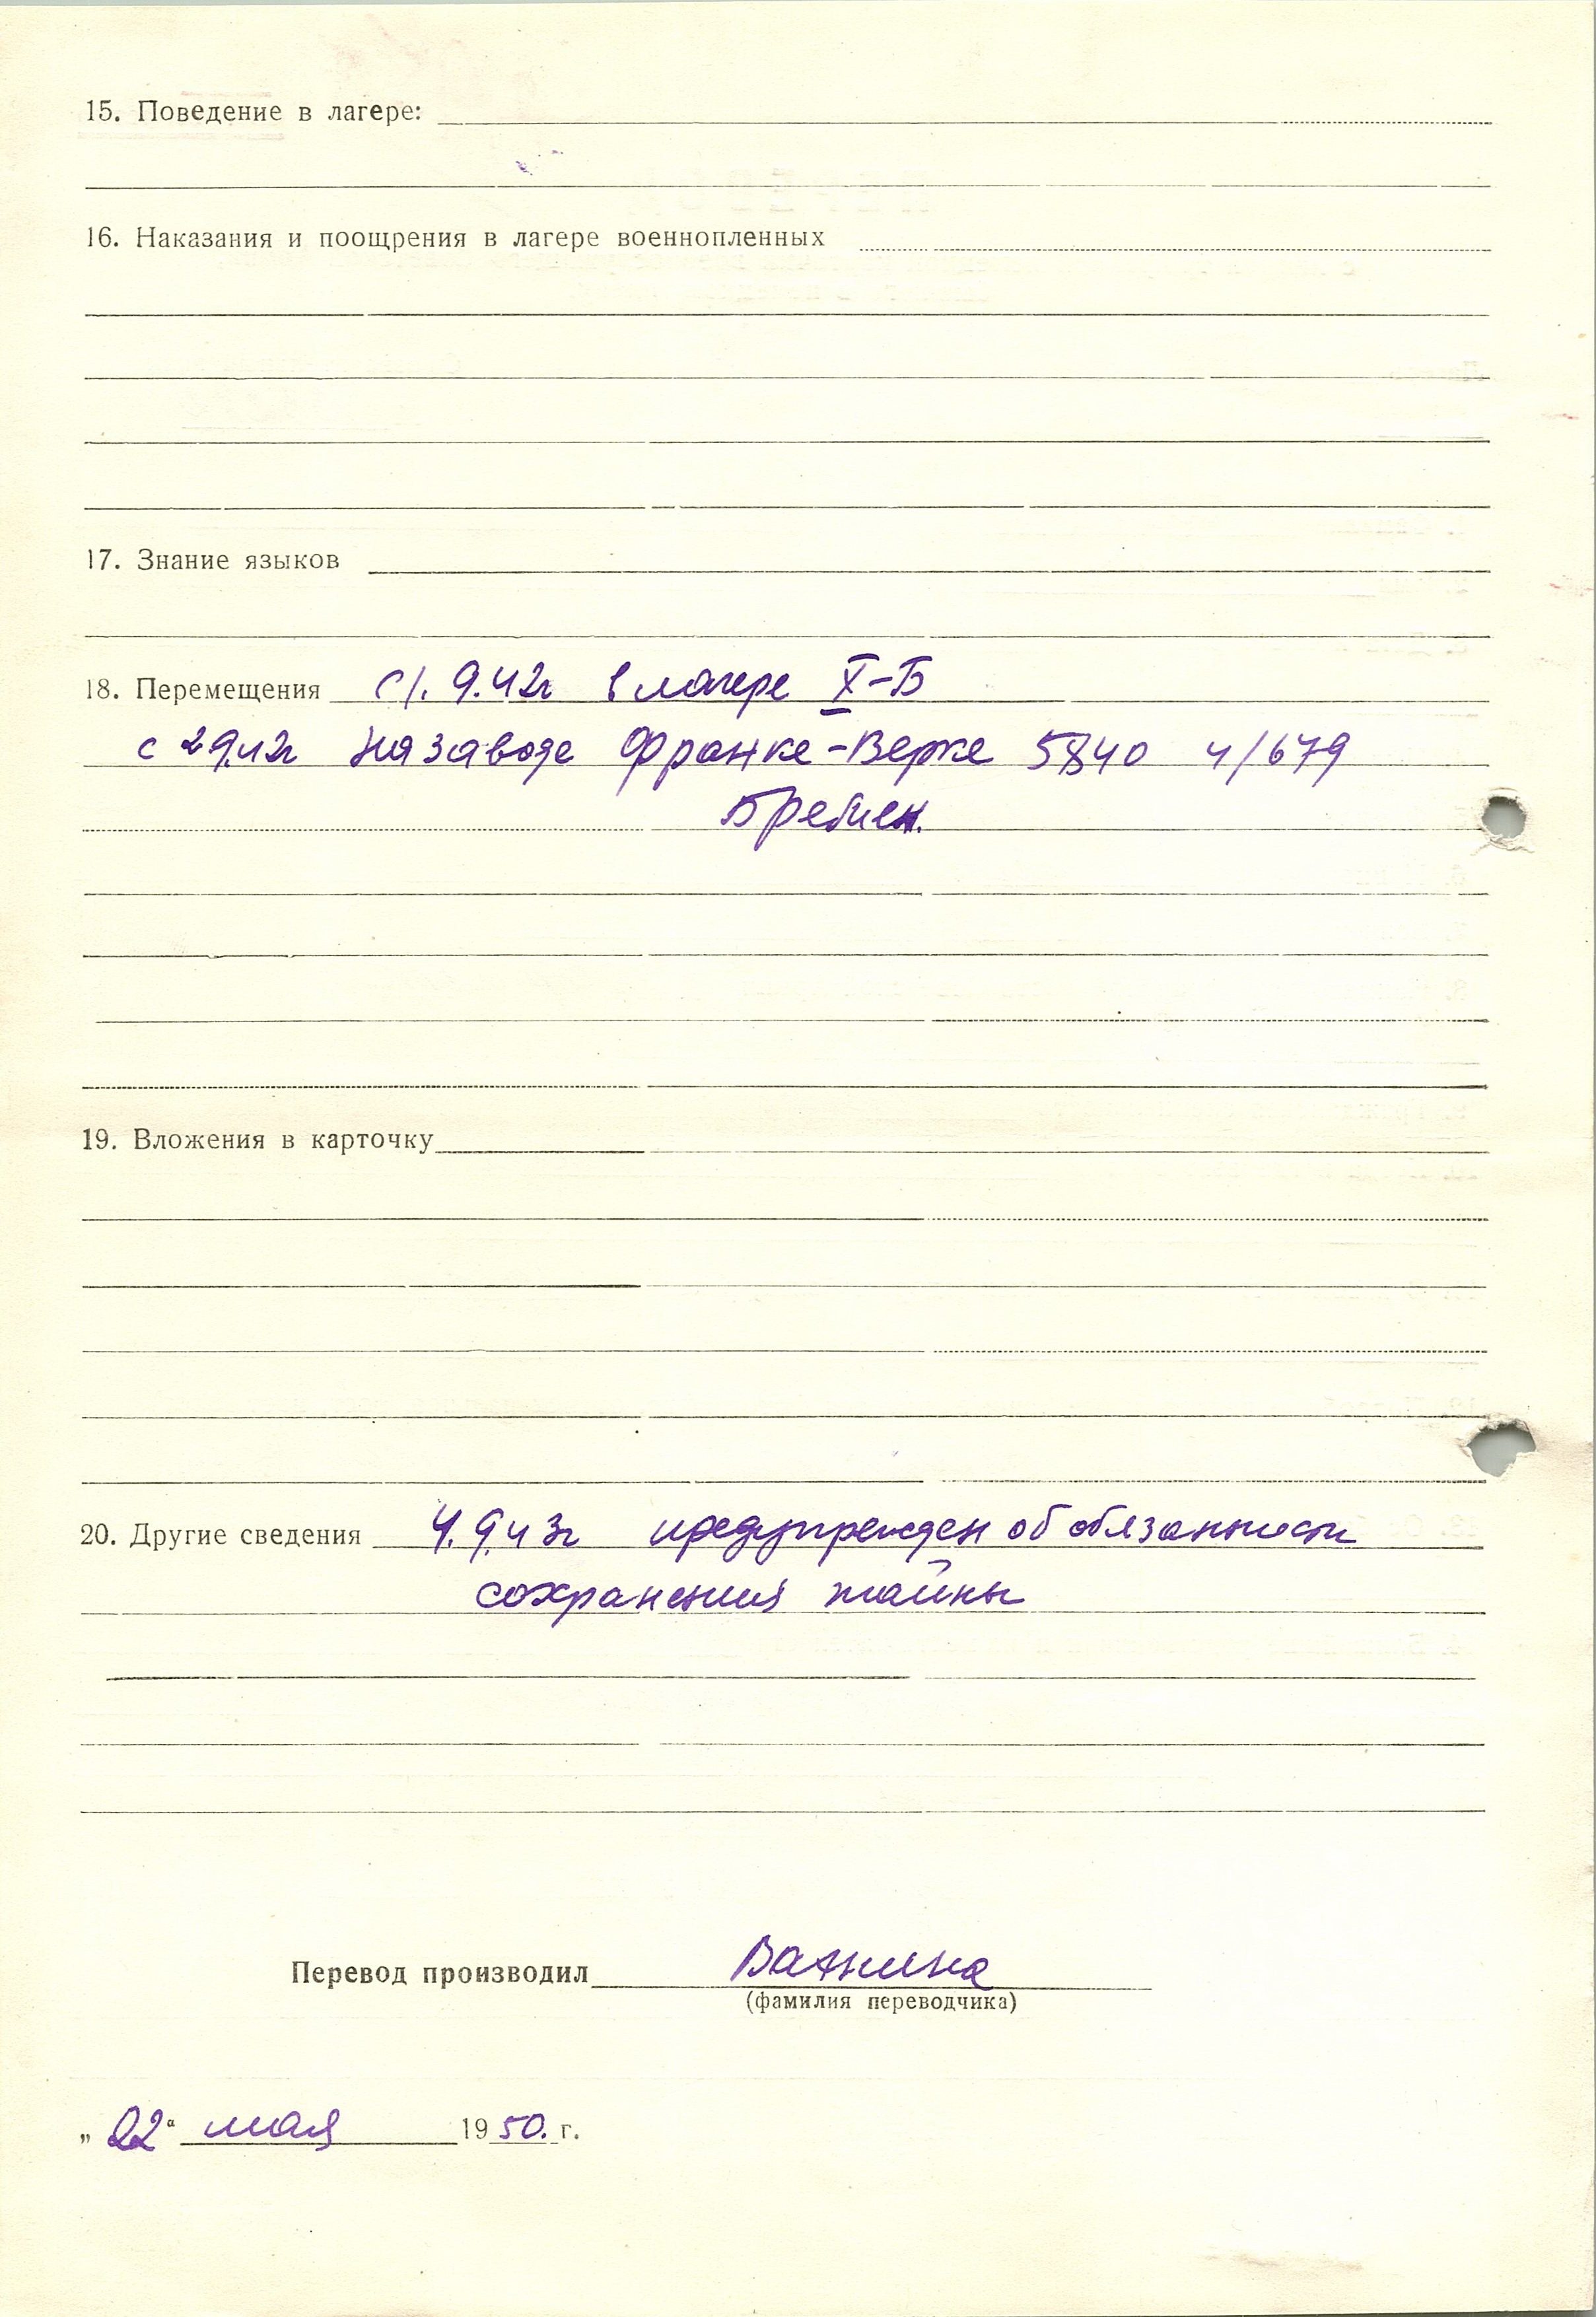 15. Поведение в лагере:
16. Наказания и поощрения в лагере военнопленных
17. Знание языков
18. Перемещения с 1.9.42г в лагере X-Б
с 2.9.42г на заводе Франке-Верке 5840 4/679
Бремен.
19. Вложения в карточку
20. Другие сведения 4.9.43г предупрежден об обязанности
сохранения тайны
Перевод производил Ванина
(фамилия переводчика)
„22“ мая 1950. г.